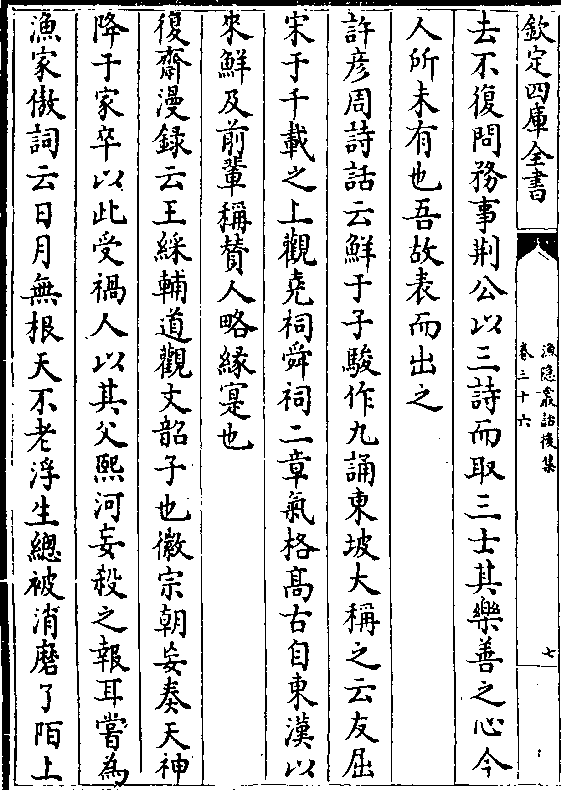 欽定四庫全書
漁隱叢話後集
卷三十六
七
去不復問務事荆公以三詩而取三士其樂善之心今
人所未有也吾故表而出之
許彦周詩話云鮮于子駿作九誦東坡大稱之云友屈
宋于千載之上觀堯祠舜祠二章氣格髙古自東漢以
來鮮及前輩稱賛人略緣寔也
復齋漫録云王綵輔道觀文韶子也徽宗朝妄奏天神
降于家卒以此受禍人以其父熙河妄殺之報耳嘗為
漁家傲詞云日月無根天不老浮生總被消磨了陌上